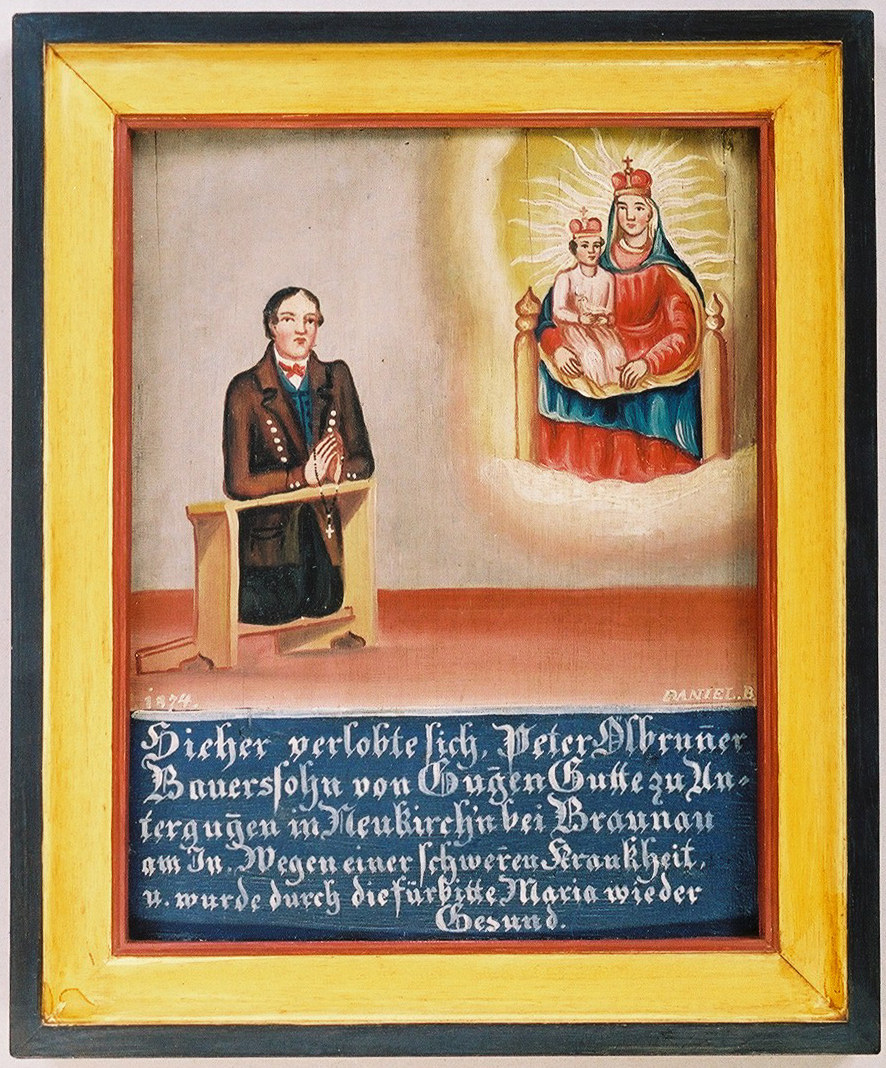 1874. DANIEL.B.
Hieher verlobte sich, Peter Ölbrun̄er
Bauerssohn von Gug̅en Gutte zu Un-
tergug̅en in Neukirch̄n bei Braunau
am In. Wegen einer schwer̄en Krankheit,
u. wurde durch die fürbitte Maria wieder
Gesund.